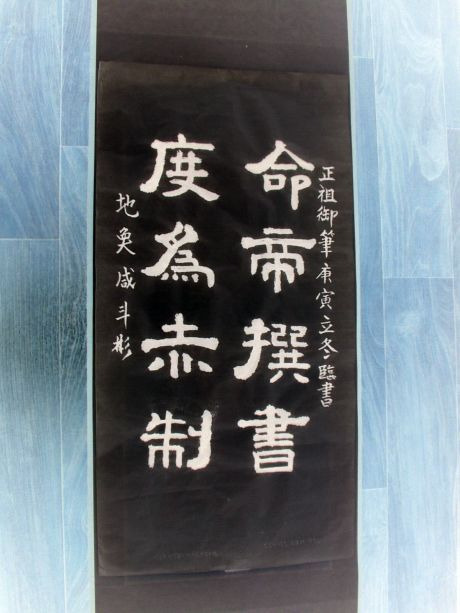 正祖御筆庚寅立冬臨書
命帝撰書
度爲赤制
地奐咸斗彬